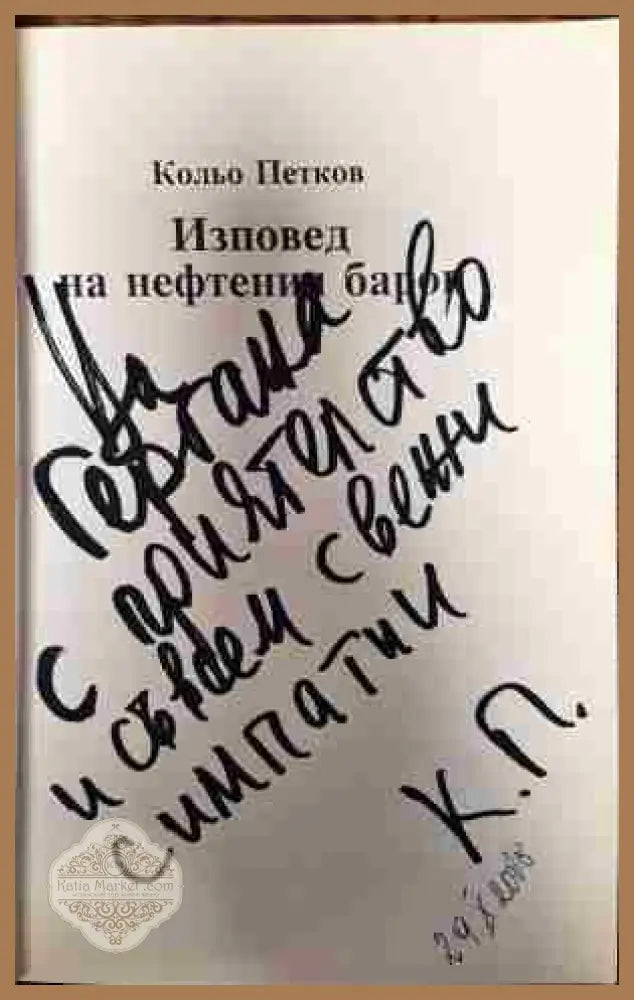 Кольо Петков
Изповед
на нефтения барон
На
Гергана
с приятелство
и съвсем свежи
симпатии
К.П.
Katia Market.com